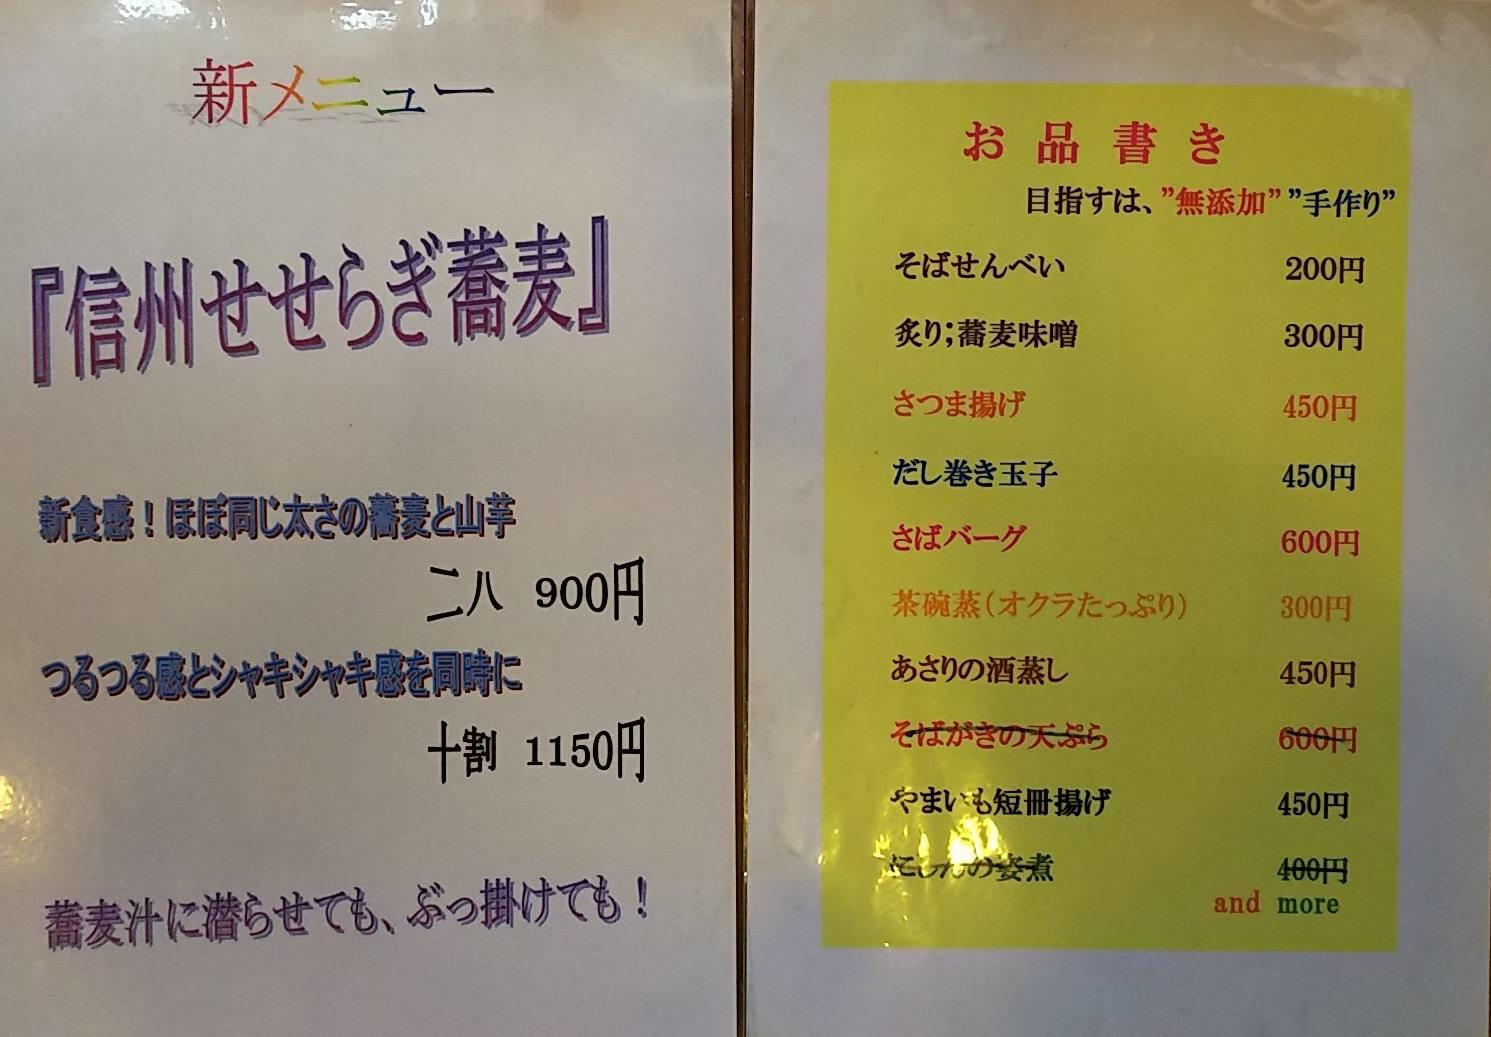 新メニュー
『信州せせらぎ蕎麦』
新食感！ほぼ同じ太さの蕎麦と山芋
二八 900円
つるつる感とシャキシャキ感を同時に
十割 1150円
蕎麦汁に潜らせても、ぶっ掛けても！
お品書き
目指すは、”無添加””手作り”
そばせんべい 200円
炙り；蕎麦味噌 300円
さつま揚げ 450円
だし巻き玉子 450円
さばバーグ 600円
茶碗蒸（オクラたっぷり） 300円
あさりの酒蒸し 450円
そばがきの天ぷら 600円
やまいも短冊揚げ 450円
にしんの姿煮 400円
and more